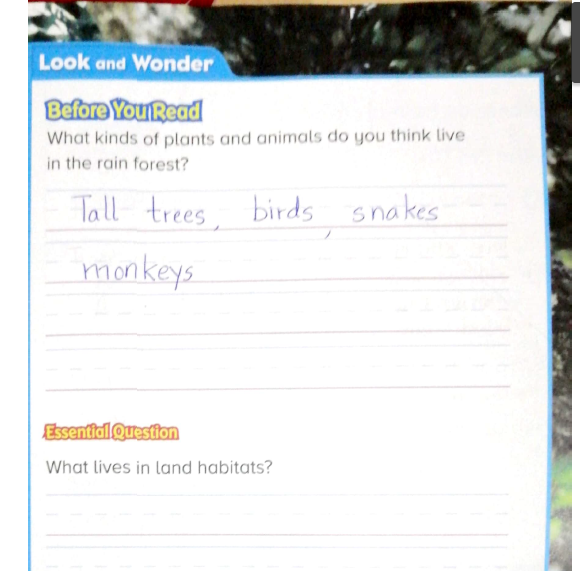 Look and Wonder
Before You Read
What kinds of plants and animals do you think live
in the rain forest?
Tall trees, birds, snakes
monkeys
Essential Question
What lives in land habitats?